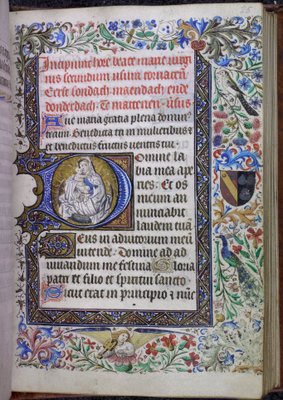 Incipiunt hore beate marie virgi
nis secundum usum tornacen
Eerste sondach maendach ende
donderdach Te mattenen
Aue maria gratia plena domin
tecum Benedicta tu in mulieribus et
et benedictus fructus ventris tui
Domine la
bia mea ape
ries Et os
meum an
nunciabit
laudem tuā
Deus in adiutorium meū
intende Domine ad ad
iuuandum me festina Gloria
patri et filio et spiritui sancto
Sicut erat in principio et nūc